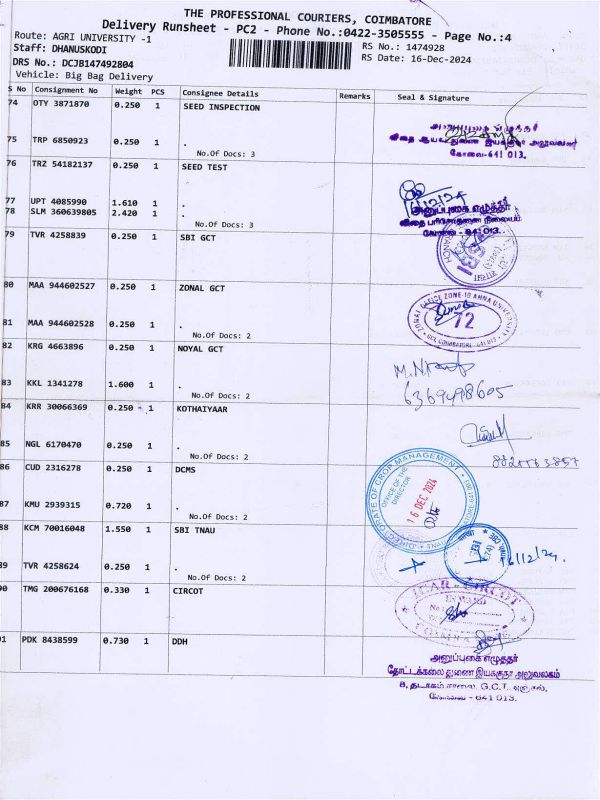 THE PROFESSIONAL COURIERS, COIMBATORE
Delivery Runsheet - PC2 - Phone No.:0422-3505555 - Page No.:4
Route: AGRI UNIVERSITY -1
RS No.: 1474928
Staff: DHANUSKODI
RS Date: 16-Dec-2024
DRS No.: DCJB147492804
Vehicle: Big Bag Delivery
S No Consignment No Weight PCS Consignee Details Remarks Seal & Signature
74 OTY 3871870 0.250 1 SEED INSPECTION
75 TRP 6850923 0.250 1 .
No.Of Docs: 3
கோவை-641 013.
76 TRZ 54182137 0.250 1 SEED TEST
16/12/24
77 UPT 4085990 1.610 1 .
அனுப்புகை எழுத்தர்
78 SLM 360639805 2.420 1 .
விதை பரிசோதனை நிலையம்
No.Of Docs: 3
கோவை - 641 013.
79 TVR 4258839 0.250 1 SBI GCT
80 MAA 944602527 0.250 1 ZONAL GCT
ZONAL OFFICE ZONE-10 ANNA UNIVERSITY
72
81 MAA 944602528 0.250 1 .
No.Of Docs: 2
82 KRG 4663896 0.250 1 NOYAL GCT
83 KKL 1341278 1.600 1 .
6369498605
No.Of Docs: 2
84 KRR 30066369 0.250 1 KOTHAIYAAR
85 NGL 6170470 0.250 1 .
No.Of Docs: 2
86 CUD 2316278 0.250 1 DCMS
DIRECTORATE OF CROP MANAGEMENT
OFFICE OF THE DIRECTOR
16 DEC 2024
87 KMU 2939315 0.720 1 .
No.Of Docs: 2
88 KCM 70016048 1.550 1 SBI TNAU
16/12/24.
89 TVR 4258624 0.250 1 .
No.Of Docs: 2
90 TMG 200676168 0.330 1 CIRCOT
ICAR-CIRCOT
INWARD
No :
91 PDK 8438599 0.730 1 DDH
அனுப்புகை எழுத்தர்
தோட்டக்கலை துணை இயக்குநர் அலுவலகம்
8, தடாகம் சாலை, G.C.T. அஞ்சல்,
கோவை - 641 013.